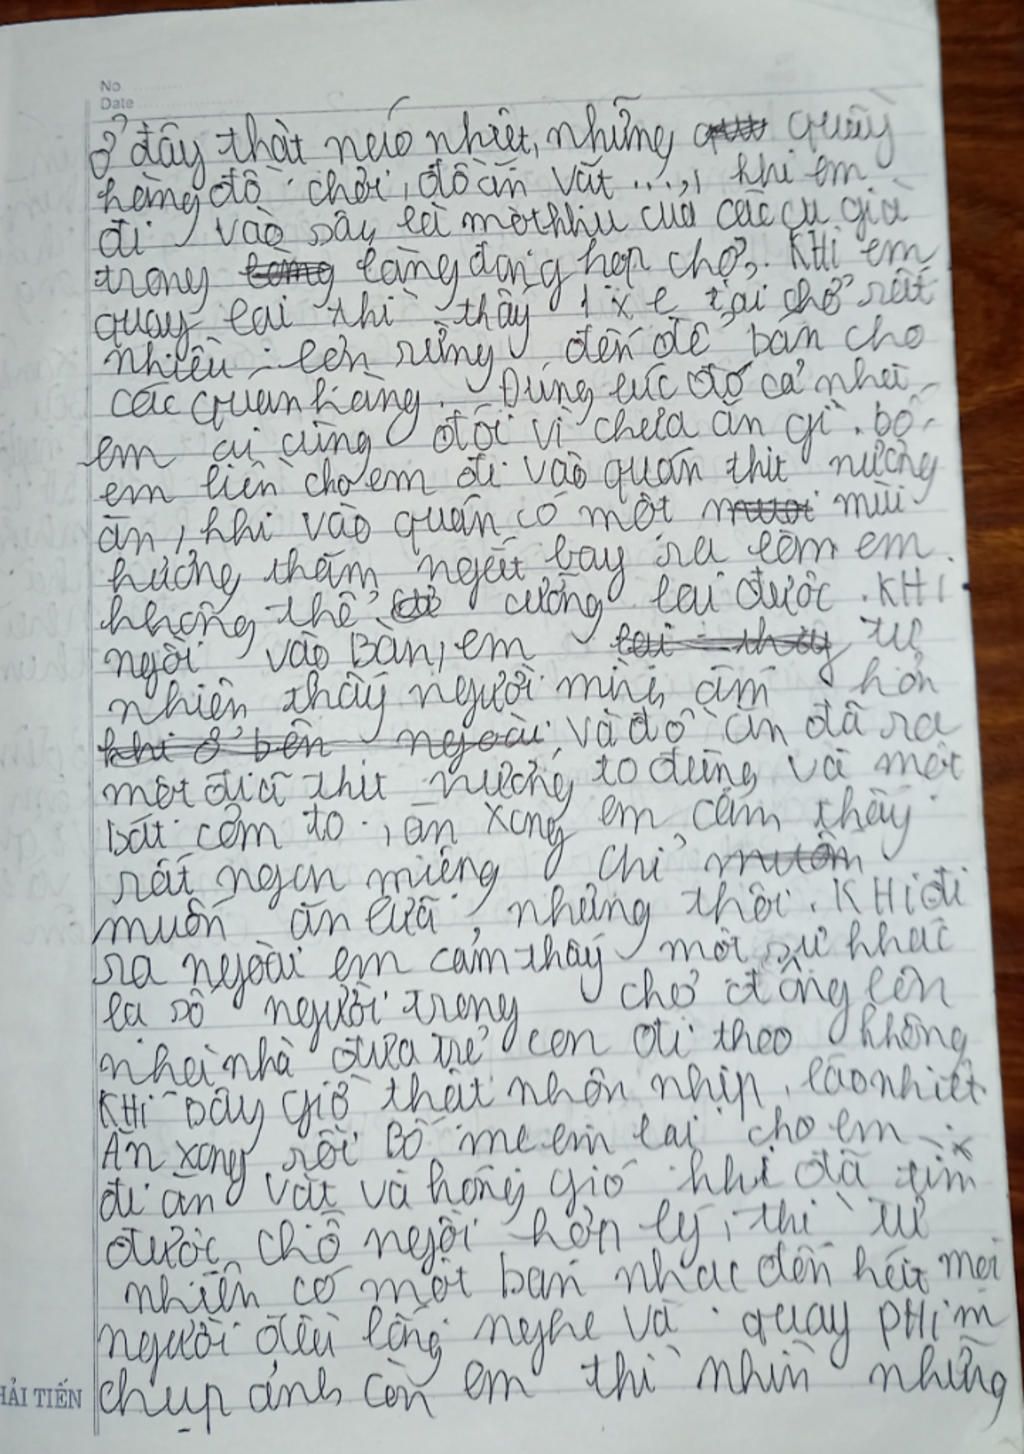 No
Date
ở đây thật náo nhiệt, những quầy
hàng đồ chơi, đồ ăn vặt ..., khi em
đi vào sâu là một khu của các cụ già
trong làng đang họp chợ. KHi em
quay lại thì thấy 1 xe tải chở rất
nhiều lợn rừng đến để bán cho
các quán hàng. Đúng lúc đó cả nhà
em ai cũng đói vì chưa ăn gì. bố
em liền cho em đi vào quán thịt nướng
ăn, khi vào quán có một mùi
hương thơm ngát bay ra làm em
không thể cưỡng lại được. KHi
ngồi vào Bàn, em tự
nhiên thấy người mình ấm hơn
và đồ ăn đã ra
một đĩa thịt nướng to đùng và một
bát cơm to, ăn xong em cảm thấy
rất ngon miệng chỉ
muốn ăn lữa nhưng thôi. KHi đi
ra ngoài em cảm thấy một sự khác
lạ số người trong chợ đông lên
nhà nhà đưa trẻ con đi theo không
KHí bây giờ thật nhộn nhịp, láo nhiệt
Ăn xong rồi Bố mẹ em lại cho em
đi ăn vặt và hóng gió khi đã tìm
được chỗ ngồi hợp lý, thì tự
nhiên có một ban nhạc đến hết mọi
người đều lắng nghe và quay pHim
chụp ảnh còn em thì nhìn những
HẢI TIẾN